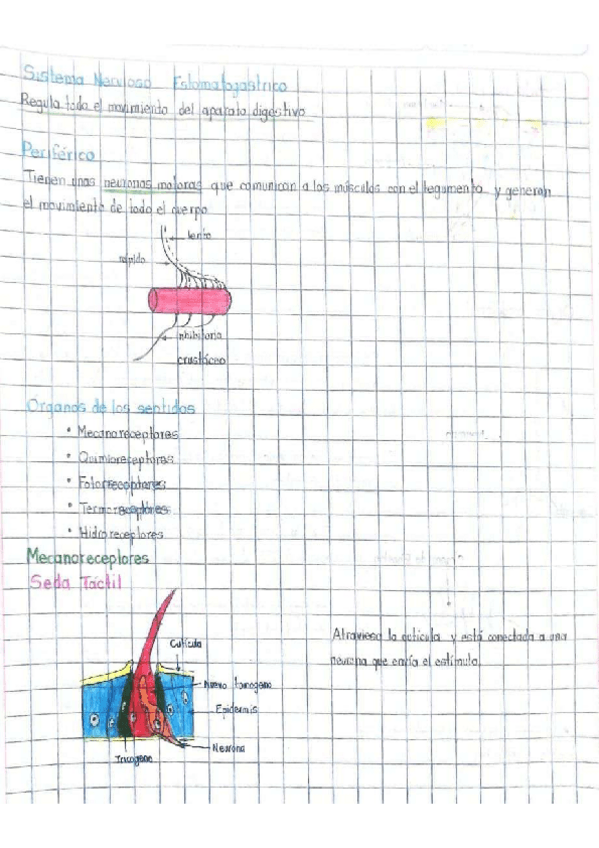 Sistema Nervioso Estomatogastrico
Regula todo el movimiento del aparato digestivo
Periférico
Tienen unas neuronas motoras que comunican a los músculos con el tegumento y generan
el movimiento de todo el cuerpo
lento
rápido
inhibitoria
crustáceo
Organos de los sentidos
• Mecanoreceptores
• Quimioreceptores
• Fotorreceptores
• Termoreceptores
• Hidroreceptores
Mecanoreceptores
Seda Táctil
Cutícula
Atraviesa la cutícula y está conectada a una
neurona que envía el estímulo.
tomogeno
Epidermis
Neurona
Tricogeno